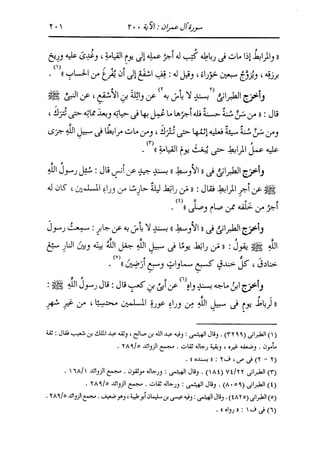 سورة آل عمران : الآية ٢٠٠
٢٠١
« والمرابط إذا مات فى رباطه كُتِب له أجرُ عملِه إلى يوم القيامةِ ، وغُدِى عليه ورِيح
برزقِه ، ويُزوَّجُ سبعين حَوْراءَ ، وقيل له : قِف اشفَعْ إلى أن يُفْرَغَ من الحساب »(١) .
وأخرَج الطبرانىُّ(٢) بسندٍ لا بأسَ به(٢) عن واثلةَ بنِ الأسْقَعِ ، عن النبىِّ ﷺ
قال : « من سَنَّ سُنَّةً حسنةً فله أجرُها ما عُمِل بها فى حياتِه وبعدَ مماتِه حتى تُتْرَكَ ،
ومن سَنَّ سُنَّةً سيئةً فعليه إثمُها حتى تُتْرَكَ ، ومن مات مرابطًا فى سبيلِ اللَّهِ جرَى
عليه عملُ المرابطِ حتى يُبعَثَ يومَ القيامةِ »(٣) .
وأخرَج الطبرانىُّ فى « الأوسط » بسندٍ جيدٍ عن أنسٍ قال : سُئِل رسولُ اللَّهِ
ﷺ عن أجرِ المرابطِ فقال : « مَن رابَط ليلةً حارسًا من وراءِ المسلمين ، كان له
أجرُ من خَلْفَه ممن صام وصلَّى »(٤) .
وأخرَج الطبرانىُّ فى « الأوسط » بسندٍ لا بأسَ به عن جابرٍ : سمِعتُ رسولَ
اللَّهِ ﷺ يقولُ : « مَن رابَط يومًا فى سبيلِ اللَّهِ جعَل اللَّهُ بينَه وبينَ النارِ سبْعَ
خنادقَ ، كلُّ خندقٍ كسبعِ سماواتٍ وسبعِ أرَضِينَ »(٥) .
وأخرَج ابنُ ماجه بسندٍ واهٍ(٦) عن أبىِّ بنِ كعبٍ قال : قال رسولُ اللَّهِ ﷺ :
« لَرِباطُ يومٍ فى سبيلِ اللَّهِ من وراءِ عورةِ المسلمين محتسِبًا ، من غيرِ شهرِ
(١) الطبرانى (٣٢٩٩) . وقال الهيثمى : وفيه عبد الله بن صالح ، وثقه عبد الملك بن شعيب فقال : ثقة
مأمون . وضعفه غيره ، وبقية رجاله ثقات . مجمع الزوائد ٢٨٩/٥ .
(٢ - ٢) فى ص ، ف٢ : « بسنده » .
(٣) الطبرانى ٧٤/٢٢ (١٨٤) . وقال الهيثمى : ورجاله موثقون . مجمع الزوائد ١٦٨/١ .
(٤) الطبرانى (٨٠٥٩) . وقال الهيثمى : ورجاله ثقات . مجمع الزوائد ٢٨٩/٥ .
(٥) الطبرانى (٤٨٢٥) . وقال الهيثمى : وفيه عيسى بن سليمان أبو طيبة ، وهو ضعيف . مجمع الزوائد ٢٨٩/٥ .
(٦) فى ف١ : « رواه » .